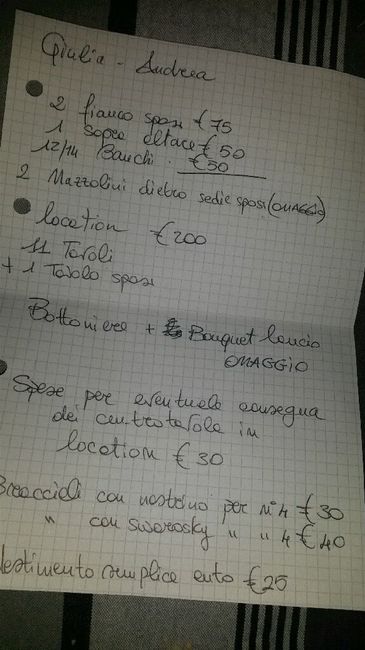 Giulia - Andrea
2 fianco sposi €75
1 sopra altare €50
12/14 Banchi. €50
2 Mazzolini dietro sedie sposi (OMAGGIO)
location €200
11 Tavoli
+ 1 Tavolo sposi
Bottoniere + Bouquet lancio
OMAGGIO
Spese per eventuale consegna
dei centrotavola in
location €30
Braccioli con nastrino per n°4 €30
" con swarosky " " 4 €40
semplice auto €25